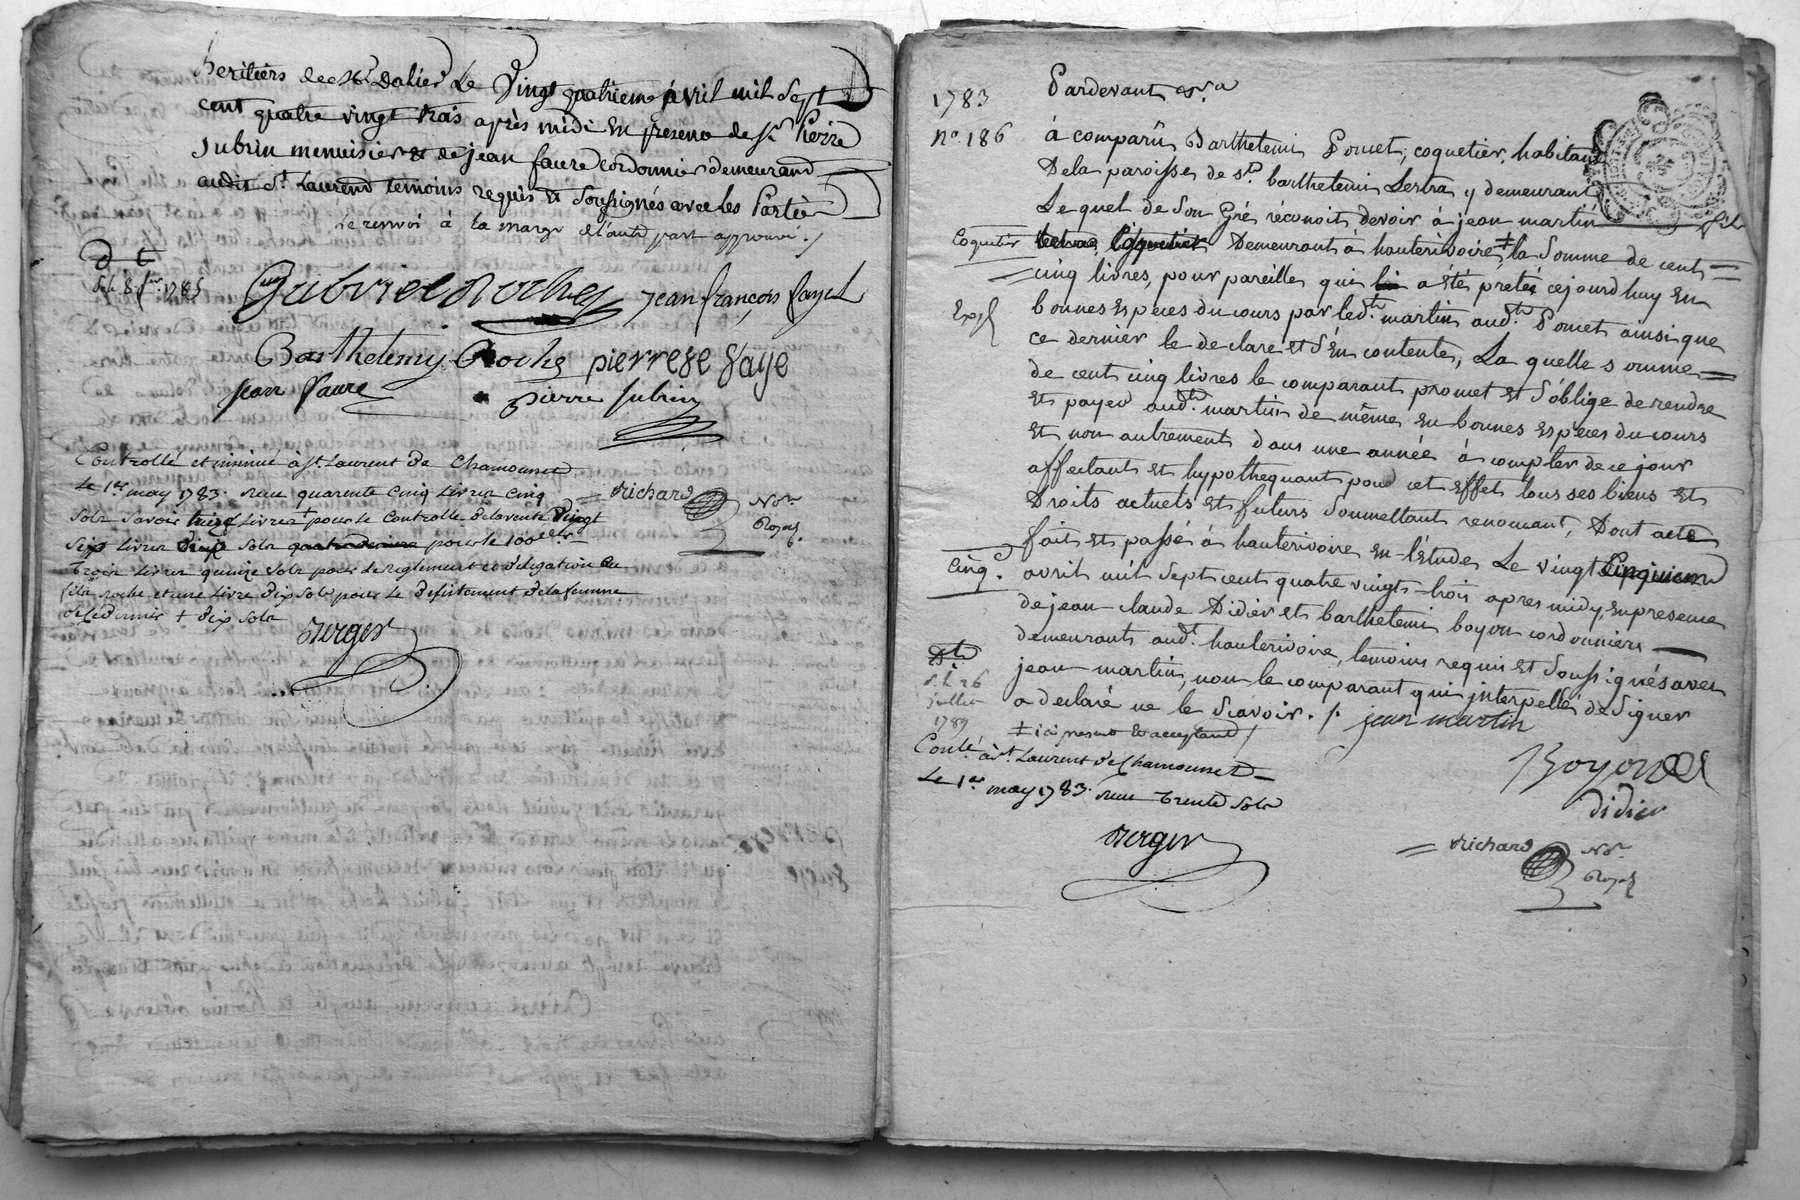 heritiers de Sr Dalier Le Vingt quatrieme avril mil Sept
cent quatre vingt trois après midi En presence de Sr Pierre
Jubrin menuisier & de jean faure Cordonnier demeurand
audit St Laurend temoins requis & Soussignés avec les Parties
le renvoi à la marge d'autre part approuvé ./
8 1785
Gabriel Roches jean françois fayel
Barthelemy Roche pierrese faye
Jean Faure pierre Jubrin
Controllé et insinué à St Laurent de Chamousset
Le 1er may 1783. reçu quarente Cinq Livres Cinq
Sols Savoir Livres pour le Controlle de la vente Vingt
Six Livres Sols pour le 100e
trois Livres quinze Sols pour le reglement et délégation
roche et une Livre Dix Sols pour Le desistement de la femme
de Ce dernier + dix Sols
Verger
= Richard Nore
Royal
1783
no. 186
Pardevant &ra
à comparû Barthelemi Pomet, coquetier, habitant
De la paroisse de st barthelemi Lestra y demeurant
Lequel de Son Gré réconoit devoir à jean martin fils
Coquetier
Demeurant à hauterivoire ‡ la Somme de cent
cinq livres, pour pareilles qui a étés pretés cejourd'huy En
Exp
bonnes Especes du cours par led.t martin aud.t Pomet ainsi que
ce dernier le declare et S'En contente, La quelle somme
de cent cinq livres le comparant promet et S'oblige de rendre
Et payer aud.t martin de même En bonnes Especes du cours
Et non autrement dans une année à compter de ce jour
affectant et hypothequant pour cet Effet tous ses biens et
Droits actuels et futurs Soumettant renoncant, Dont acte
fait et passé à hauterivoire en l'étude Le vingt Cinquieme
Cinq.
avril mil sept cent quatre vingts trois apres midy, En presence
de jean claude Didier et barthelemi boyon cordonniers
demeurants aud.t hauterivoire, temoins requis et Soussignés avec
jean martin, non le comparant qui interpellé de Signer
a declaré ne le Scavoir. /.
26
juillet
1789
‡ ici present Et acceptant /
jean martin
Boyon
didier
Conlé à St. Laurent de Chamousset
Le 1er may 1783. reçu trente sols
Verger
= Richard Nore
Royal